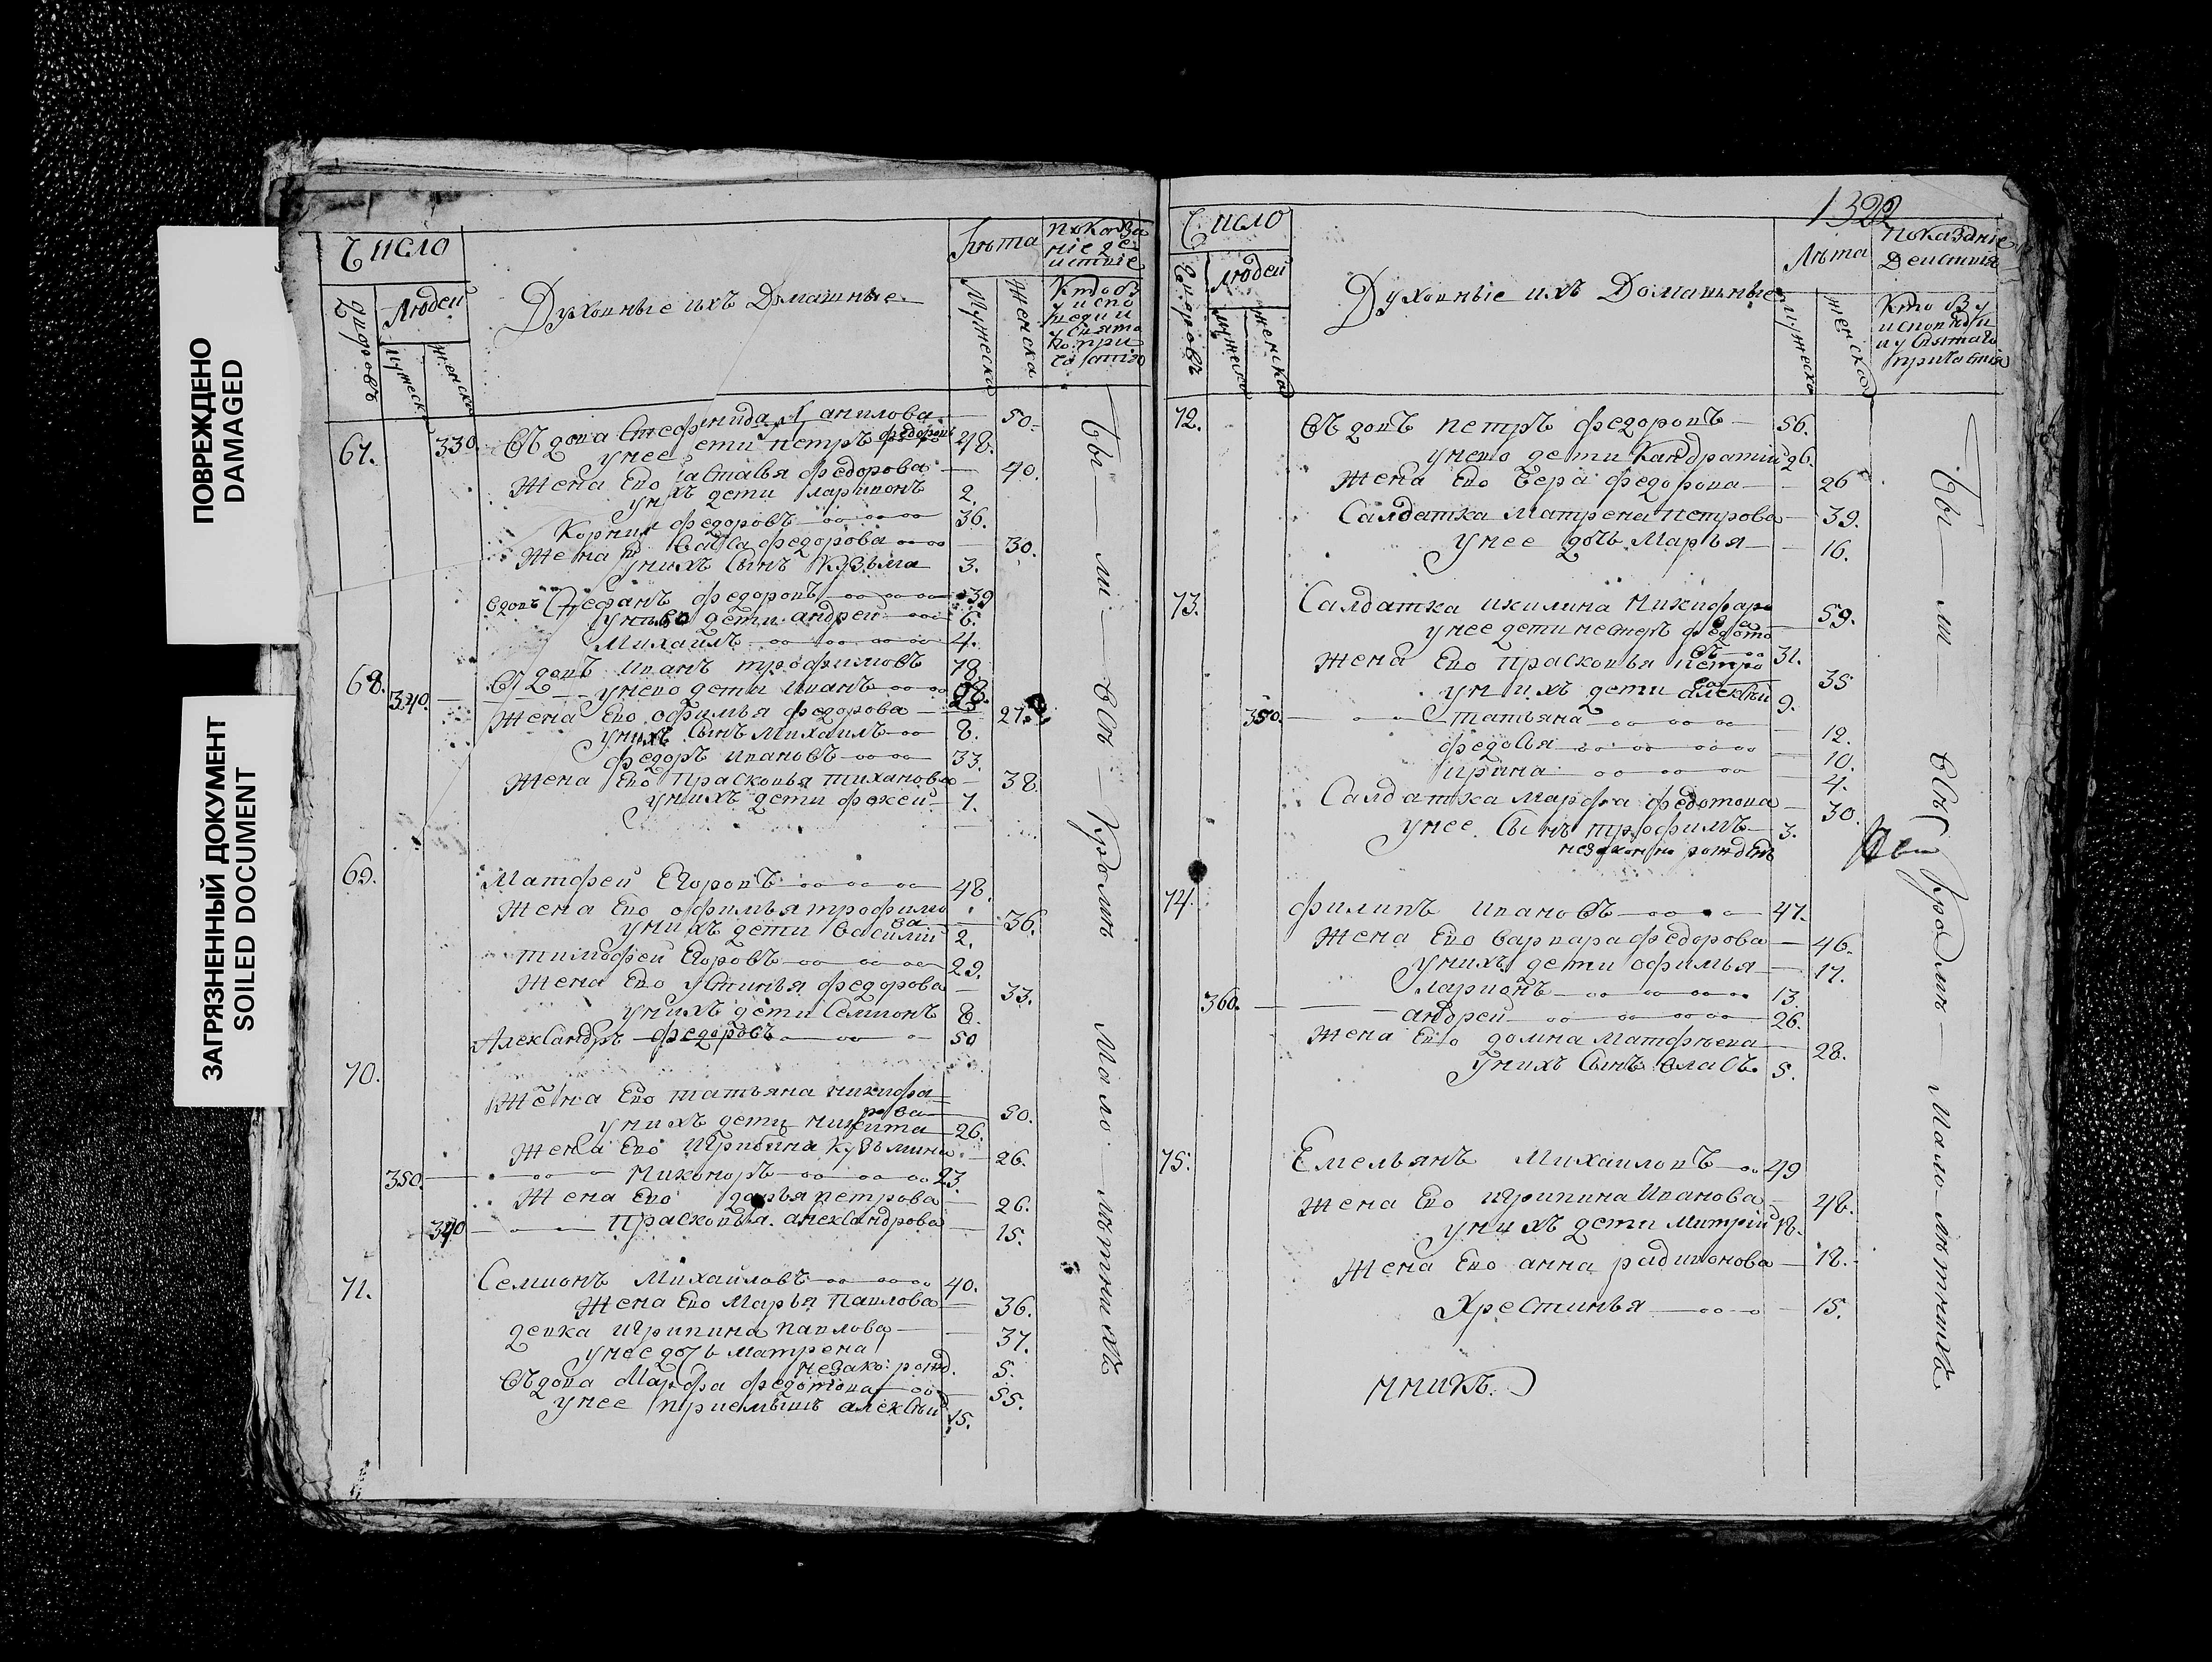 ПОВРЕЖДЕНО
DAMAGED
ЗАГРЯЗНЕННЫЙ ДОКУМЕНТ
SOILED DOCUMENT
Число
Людей
Мужеска
Женска
Духовные ихъ Домашные
Лѣта
Мужеска
Женска
67. 330. Въдова Стефанида Данилова — 50.
унее дети Петръ Федоровъ 28.
Жена Ево Настасья Федорова — 40.
унихъ дети Ларивонъ 2.
Федоровъ 36.
Жена Федорова 30.
унихъ Сынъ Кузьма 3.
Вдовъ Стефанъ Федоровъ 39
унево дети андрей 6.
Михайлъ 4.
68. Вдовъ Иванъ трофимовъ 78.
340. унево дети иванъ
Жена Ево офимья федорова — 27.
унихъ Сынъ Михайлъ 8.
федоръ ивановъ 33.
Жена Ево Прасковья тиханова 38.
унихъ дети фокей 7.
69. Матфей Егоровъ 48.
Жена Ево офимья трофимова 36.
унихъ дети василий 2.
тимофей Егоровъ 29.
Жена Ево устинья федорова 33.
унихъ дети Семионъ 8.
Александръ федоровъ 50
70.
Жена Ево татьяна никифорова 50.
унихъ дети никита 26.
Жена Ево Игрипина кузьмина 26.
350. Никоноръ 23.
Жена Ево дарья петрова 26.
340 Прасковья александрова 15.
71. Семионъ Михайловъ 40.
Жена Ево Марья Павлова 36.
девка игрипина павлова 37.
унее дочь матрена
незако: рожд. 5.
Въдова Марфа федотова 55.
унее приемышъ алексѣй 15.
Были все Кроме Мало летнихъ
1322
Число
Людей
Женска
Духовные ихъ Домашные
Лѣта
Показание
Действия
Женска
Кто Бу
72. Въдовъ петръ федоровъ — 56.
унево дети Кандратий 26.
Жена Ево Вера федорова — 26
Салдатка матрена петрова 39.
унее дочь марья — 16.
73. Салдатка икилина никифаро 59.
унее дети несторъ федотовъ 31.
Жена Ево прасковья петрова 35
унихъ дети алексѣй 9.
350. татьяна 12.
федосья 10.
ирина 4.
Салдатка марфа федотова 30.
унее Сынъ трофимъ 3.
незаконно рожденъ
74. филипъ ивановъ 47.
Жена Ево варвара федорова 46.
унихъ дети офимья 17.
Ларионъ 13.
360. андрей 26.
Жена Ево домна матфѣева 28.
унихъ Сынъ власъ 5.
75. Емельянъ Михайловъ 49
Жена Ево игрипина Иванова 48.
унихъ дети митрий 18.
Жена Ево анна радивонова 18.
Хрестинья 15.
ннихъ.
Были все Кроме Мало летнихъ